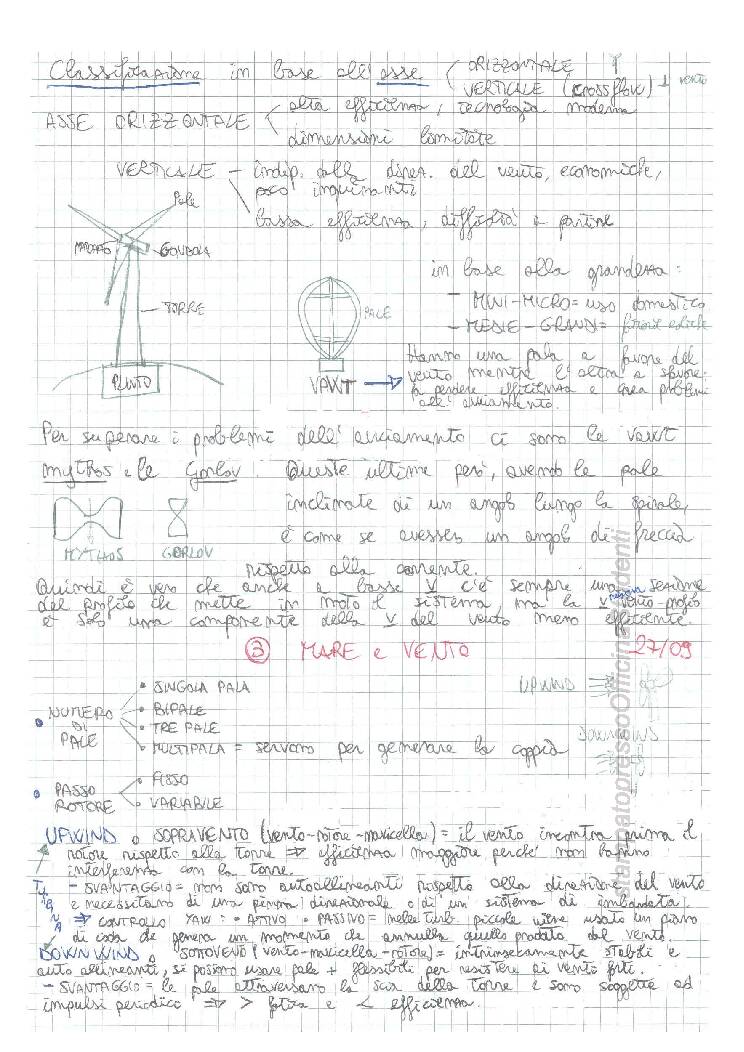 Classificazione in base all'asse
ORIZZONTALE
VERTICALE (crossflow) ⊥ vento
ASSE ORIZZONTALE
alta efficienza, tecnologia moderna
dimensioni limitate
VERTICALE - indip. dalla direz. del vento, economiche,
poco inquinanti
bassa efficienza, difficoltà a partire
Pale
MOZZO
GONDOLA
TORRE
PLINTO
PALE
VAWT
in base alla grandezza:
- MINI-MICRO = uso domestico
- MEDIE-GRANDI = fattorie eoliche
Hanno una pala a favore del
vento mentre l'altra a sfavore:
fa perdere efficienza e crea problemi
all'avviamento.
Per superare i problemi dell'avviamento ci sono le VAWT
mythos e le Gorlov. Queste ultime però, avendo le pale
inclinate di un angolo lungo la spirale,
è come se avesser un angolo di freccia
rispetto alla corrente.
MYTHOS
GORLOV
Quindi è vero che anche a basse V c'è sempre una sezione
del profilo che mette in moto il sistema, ma la V vento-profilo
è solo una componente della V del vento meno efficiente.
③ MARE e VENTO 27/09
• NUMERO DI PALE
• SINGOLA PALA
• BIPALE
• TRE PALE
• MULTIPALA = servono per generare la coppia
UPWIND
DOWNWIND
• PASSO ROTORE
• FISSO
• VARIABILE
UPWIND o SOPRAVENTO (vento-rotore-navicella) = il vento incontra prima il
rotore rispetto alla torre => efficienza maggiore perché non hanno
interferenza con la torre.
- SVANTAGGIO = non sono autoallineanti rispetto alla direzione del vento
e necessitano di una pinna direzionale o di un sistema di imbardata.
=> CONTROLLO YAW: • ATTIVO • PASSIVO = nelle turb. piccole viene usato un piano
di coda che genera un momento che annulla quello prodotto dal vento.
DOWNWIND o SOTTOVENTO (vento-navicella-rotore) = intrinsecamente stabili e
auto allineanti, si possono usare pale + flessibili per resistere ai venti forti.
- SVANTAGGIO = le pale attraversano la scia della torre e sono soggette ad
impulsi periodico => > fatica e < efficienza.